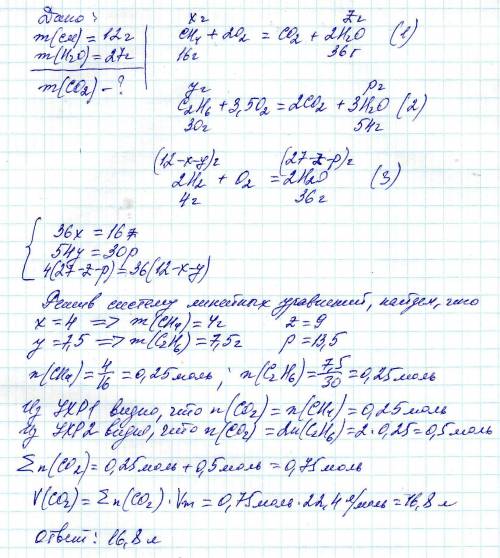 Дано:
m(см)=12г
m(H₂O)=27г
m(CO₂)-?
xг zг
CH₄ + 2O₂ = CO₂ + 2H₂O (1)
16г 36г
yг pг
C₂H₆ + 3,5O₂ = 2CO₂ + 3H₂O (2)
30г 54г
(12-x-y)г (27-z-p)г
2H₂ + O₂ = 2H₂O (3)
4г 36г
36x = 16z
54y = 30p
4(27-z-p)=36(12-x-y)
Решив систему линейных уравнений, найдем, что
x = 4 => m(CH₄)=4г z = 9
y = 7,5 => m(C₂H₆)=7,5г p = 13,5
n(CH₄)=4/16=0,25моль; n(C₂H₆)=7,5/30=0,25моль
Из УХР1 видно, что n(CO₂)=n(CH₄)=0,25моль
Из УХР2 видно, что n(CO₂)=2n(C₂H₆)=2·0,25=0,5моль
Σn(CO₂)=0,25моль+0,5моль=0,75моль
V(CO₂)=Σn(CO₂)·Vm=0,75моль·22,4л/моль=16,8л
Ответ: 16,8л